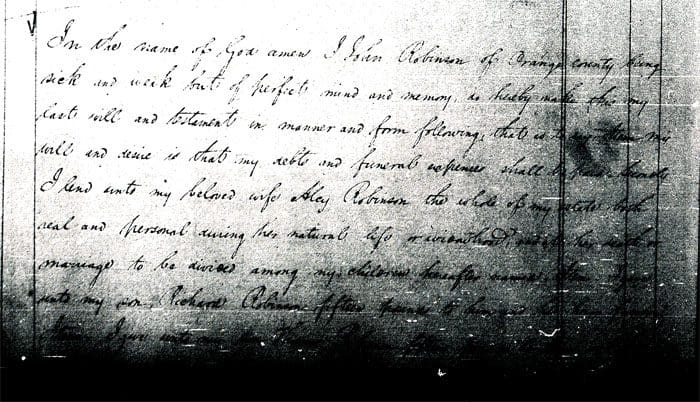 In the name of God amen I John Robinson of Orange county being
sick and weak but of perfect mind and memory, do hereby make this my
last will and testament in manner and form following, that is to say my
will and desire is that my debts and funeral expenses shall be
I lend unto my beloved wife Aley Robinson the whole of my estate both
real and personal during her natural life or widowhood, and at her death or
marriage to be divided among my children hereafter named, Item I give
unto my son Richard Robinson fifteen pounds to him and
Item I give unto my son